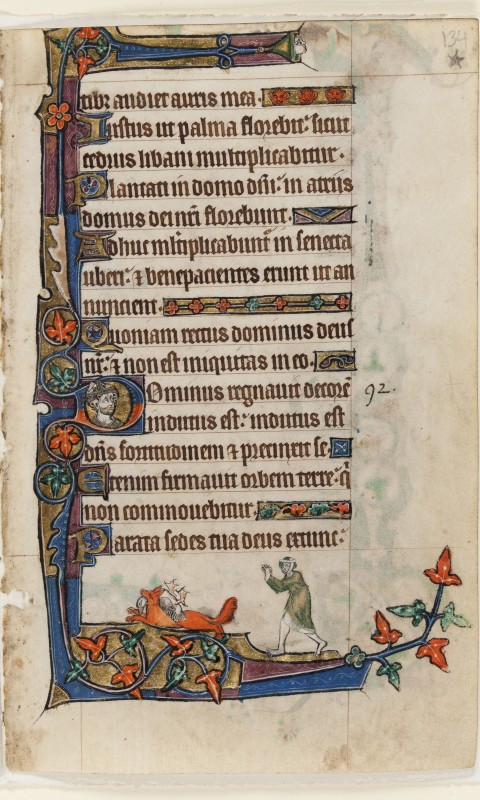 134
tibȝ audiet auris mea.
Iustus ut palma florebit: sicut
cedrus libani multiplicabitur.
Plantati in domo dñi: in atriis
domus dei nr̃i florebunt.
Adhuc ml̃tiplicabunt̃ in senecta
uberi: ⁊ benepacientes erunt ut an
nuncient.
Quoniam rectus dominus deus
nr̃: ⁊ non est iniquitas in eo.
Dominus regnauit decorẽ
92.
indutus est: indutus est
dñs fortitudinem ⁊ precinxit se.
Etenim firmauit orbem terre: q̃
non commouebitur.
Parata sedes tua deus extunc: